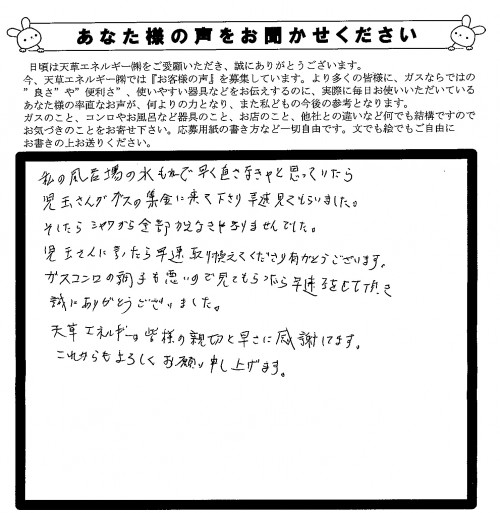 あなた様の声をお聞かせください
日頃は天草エネルギー㈱をご愛願いただき、誠にありがとうございます。
今、天草エネルギー㈱では『お客様の声』を募集しています。より多くの皆様に、ガスならではの
"良さ"や"便利さ"、使いやすい器具などをお伝えするのに、実際に毎日お使いいただいている
あなた様の率直なお声が、何よりの力となり、また私どもの今後の参考となります。
ガスのこと、コンロやお風呂など器具のこと、お店のこと、他社との違いなど何でも結構ですので
お気づきのことをお寄せ下さい。応募用紙の書き方など一切自由です。文でも絵でもご自由に
お書きの上お送りください。
私の風呂場の水もれで早く直さなきゃと思っていたら
児玉さんがガスの集金に来て下さり早速見てもらいました。
そしたらシャワから全部かえなきゃなりませんでした。
児玉さんに言ったら早速取り換えてくださり有がとうございます。
ガスコンロの調子も悪いので見てもらったら早速
誠にありがとうございました。
天草エネルギーの皆様の親切と早さに感謝してます。
これからもよろしくお願い申し上げます。